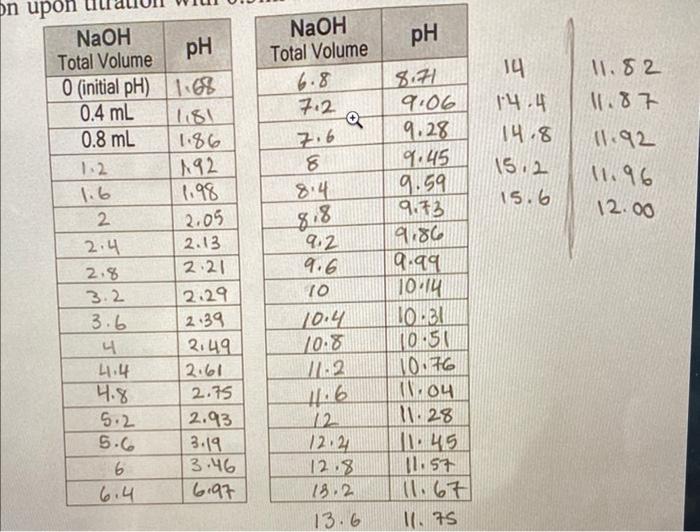 on upon titration with 0.5m
NaOH
Total Volume pH
0 (initial pH) 1.68
0.4 mL 1.81
0.8 mL 1.86
1.2 1.92
1.6 1.98
2 2.05
2.4 2.13
2.8 2.21
3.2 2.29
3.6 2.39
4 2.49
4.4 2.61
4.8 2.75
5.2 2.93
5.6 3.19
6 3.46
6.4 6.97
NaOH
Total Volume pH
6.8 8.71
7.2 9.06
7.6 9.28
8 9.45
8.4 9.59
8.8 9.73
9.2 9.86
9.6 9.99
10 10.14
10.4 10.31
10.8 10.51
11.2 10.76
11.6 11.04
12 11.28
12.4 11.45
12.8 11.57
13.2 11.67
13.6 11.75
14 11.82
14.4 11.87
14.8 11.92
15.2 11.96
15.6 12.00